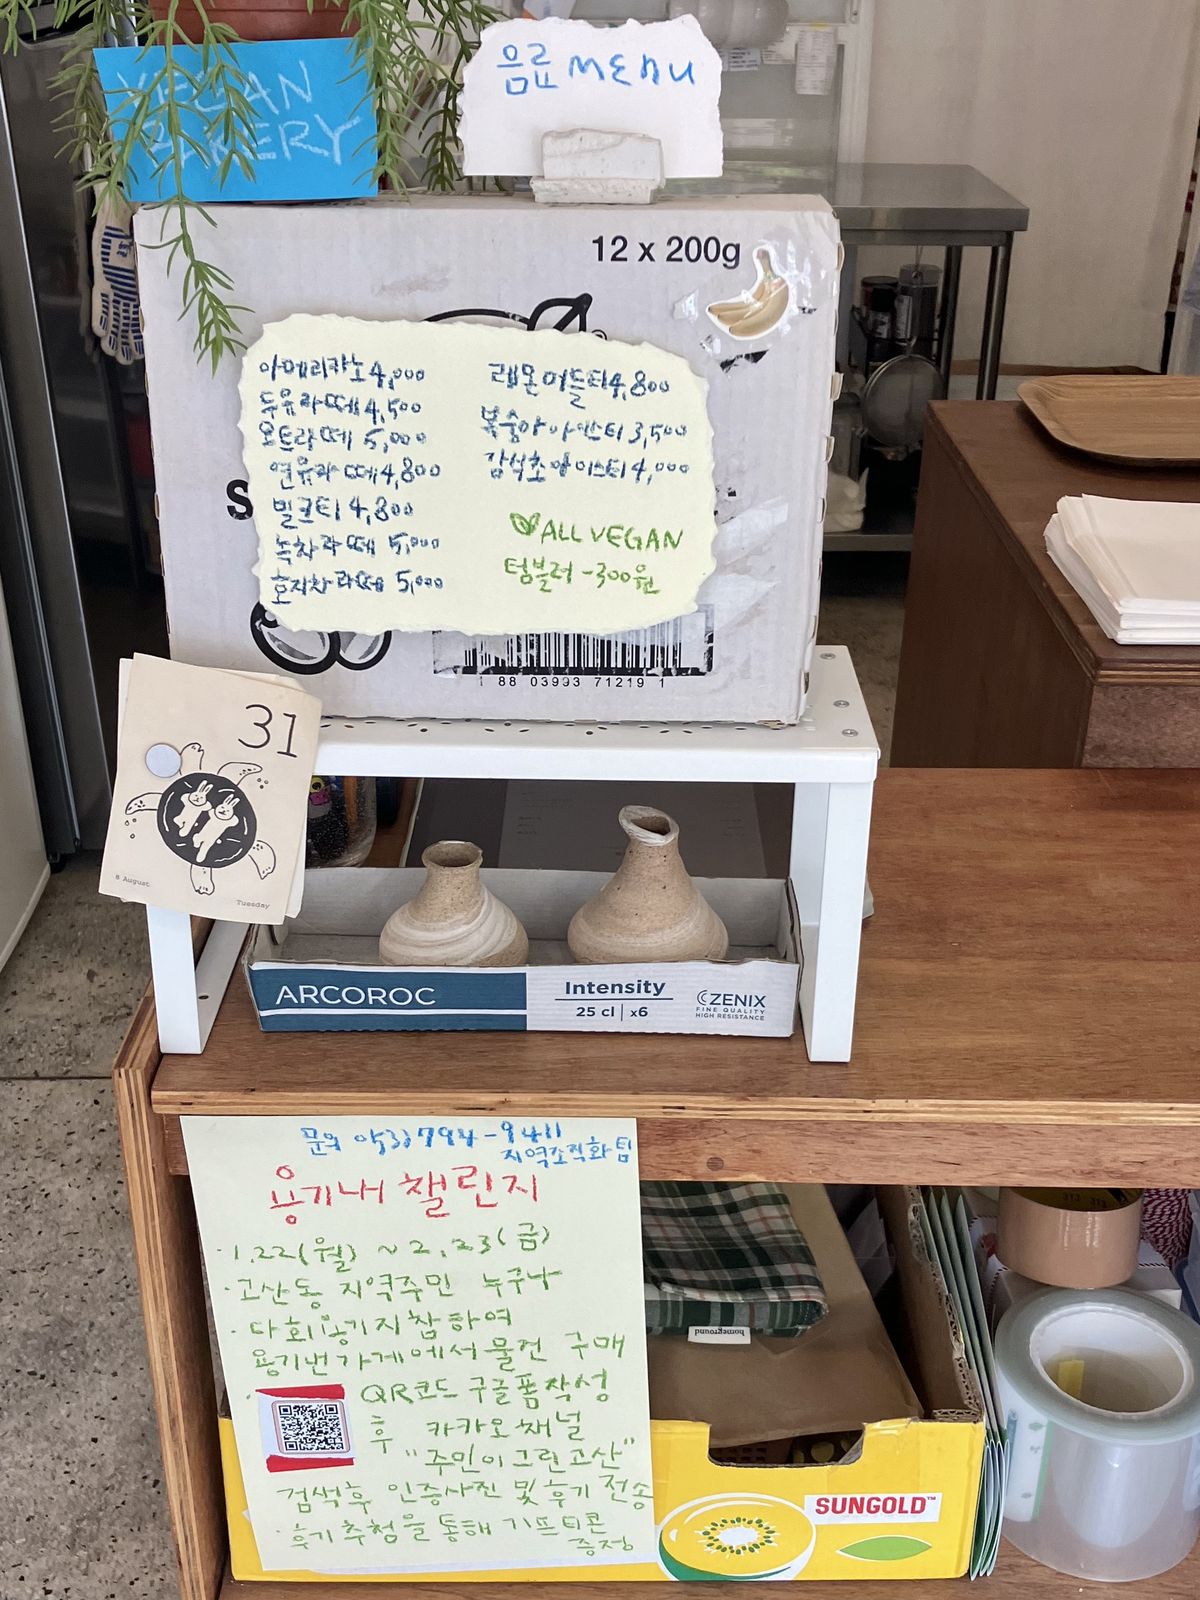 VEGAN
BAKERY
음료 MENU
12 x 200g
아메리카노 4,000
두유라떼 4,500
오트라떼 5,000
연유라떼 4,800
밀크티 4,800
녹차라떼 5,000
호지차라떼 5,000
레몬머틀티 4,800
복숭아아이스티 3,500
감식초아이스티 4,000
ALL VEGAN
텀블러 -300원
S
1 88 03993 71219 1
31
8 August
Tuesday
ARCOROC
Intensity
25 cl | x6
ZENIX
FINE QUALITY
HIGH RESISTANCE
문의 053) 794-9411
지역조직화팀
용기내 챌린지
· 1.22(월) ~ 2.23(금)
· 고산동 지역주민 누구나
· 다회용기 지참하여
용기낸가게에서 물건 구매
· QR코드 구글폼작성
후 카카오채널
"주민이그린고산"
검색후 인증사진 및 후기 전송
· 후기 추첨을 통해 기프티콘
증정
homeground
SUNGOLD™
313